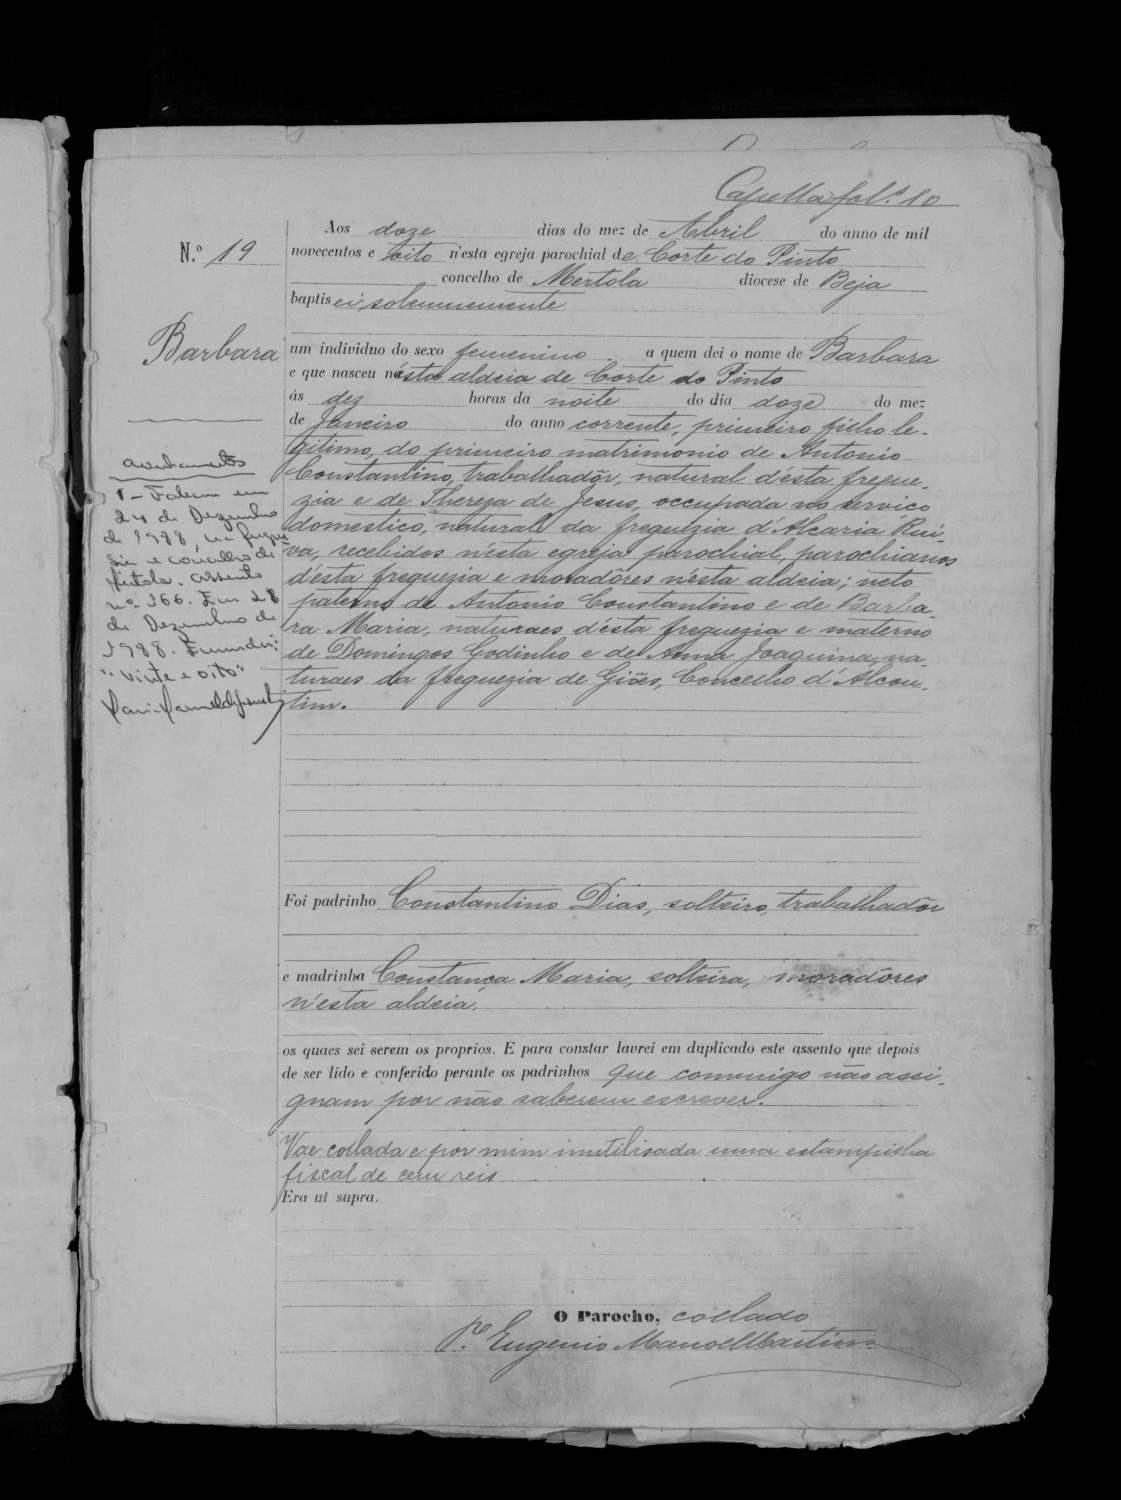 Capella fol.ª 10
Aos doze dias do mez de Abril do anno de mil
N.º 19
novecentos e oito n'esta egreja parochial de Corte do Pinto
concelho de Mertola diocese de Beja
baptisei solemnemente
Barbara
um individuo do sexo femenino a quem dei o nome de Barbara
e que nasceu n'ésta aldeia de Corte do Pinto
ás dez horas da noite do dia doze do mez
de Janeiro do anno corrente, primeiro filho le-
gitimo, do primeiro matrimonio de Antonio
Constantino, trabalhadôr, natural d'ésta fregue-
zia e de Thereza de Jesus, occupada no serviço
domestico, natural da freguezia d'Alcaria Rui-
va, recebidos n'ésta egreja parochial, parochianos
d'ésta freguezia e moradôres n'ésta aldeia; neto
paterno de Antonio Constantino e de Barba-
ra Maria, naturaes d'ésta freguezia e materno
de Domingos Godinho e de Anna Joaquina, na-
turaes da freguezia de Giões, Concelho d'Alcou-
tim.
averbamentos
1 - Faleceu em
24 de Dezembro
de 1988, na fregue
sia e concelho de
Assento
nº 366. Em 28
de Dezembro de
1988. Emendei:
"vinte e oito"
Foi padrinho Constantino Dias, solteiro, trabalhadôr
e madrinha Constança Maria, solteira, moradôres
n'ésta aldeia,
os quaes sei serem os proprios. E para constar lavrei em duplicado este assento que depois
de ser lido e conferido perante os padrinhos que commigo não assi-
gnam por não saberem escrever.
Vae collada e por mim inutilisada uma estampilha
fiscal de cem reis
Era ut supra.
O Parocho, collado
P.e Eugenio Manoel Martins